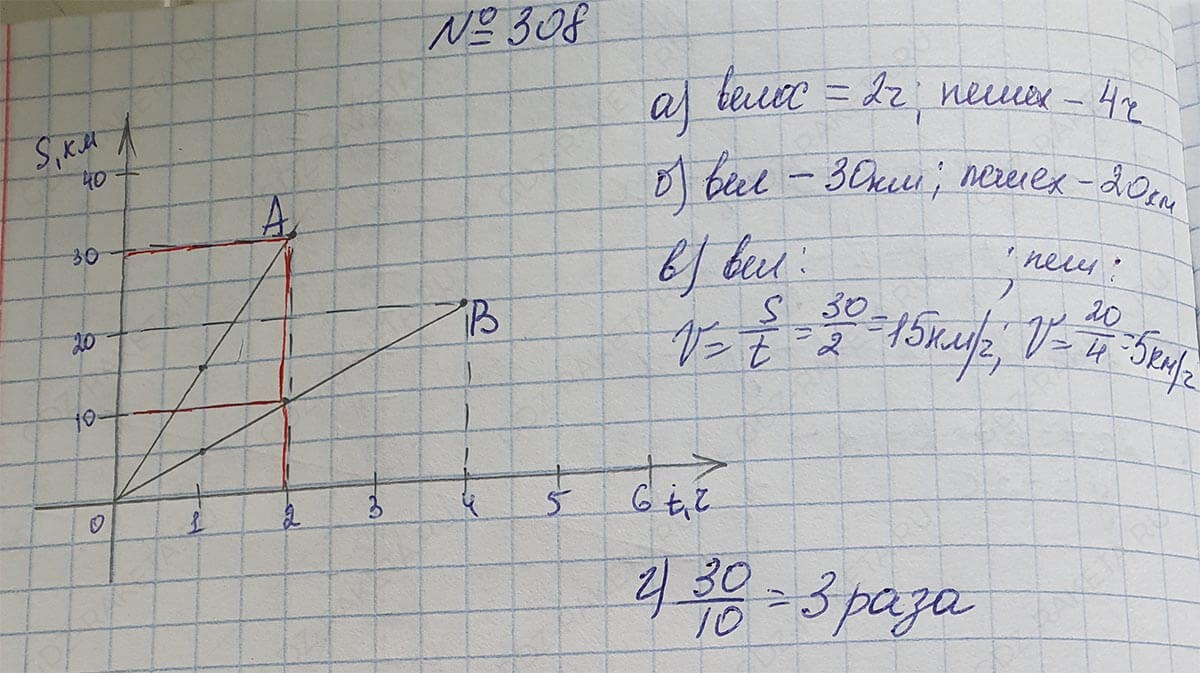 № 308
а) велос = 2ч; пешех - 4ч
б) вел - 30км; пешех - 20км
в) вел: ; пеш:
V = S/t = 30/2 = 15км/ч; V = 20/4 = 5км/ч
г) 30/10 = 3 раза
S, км
40
A
30
B
20
10
0 1 2 3 4 5 6 t, ч